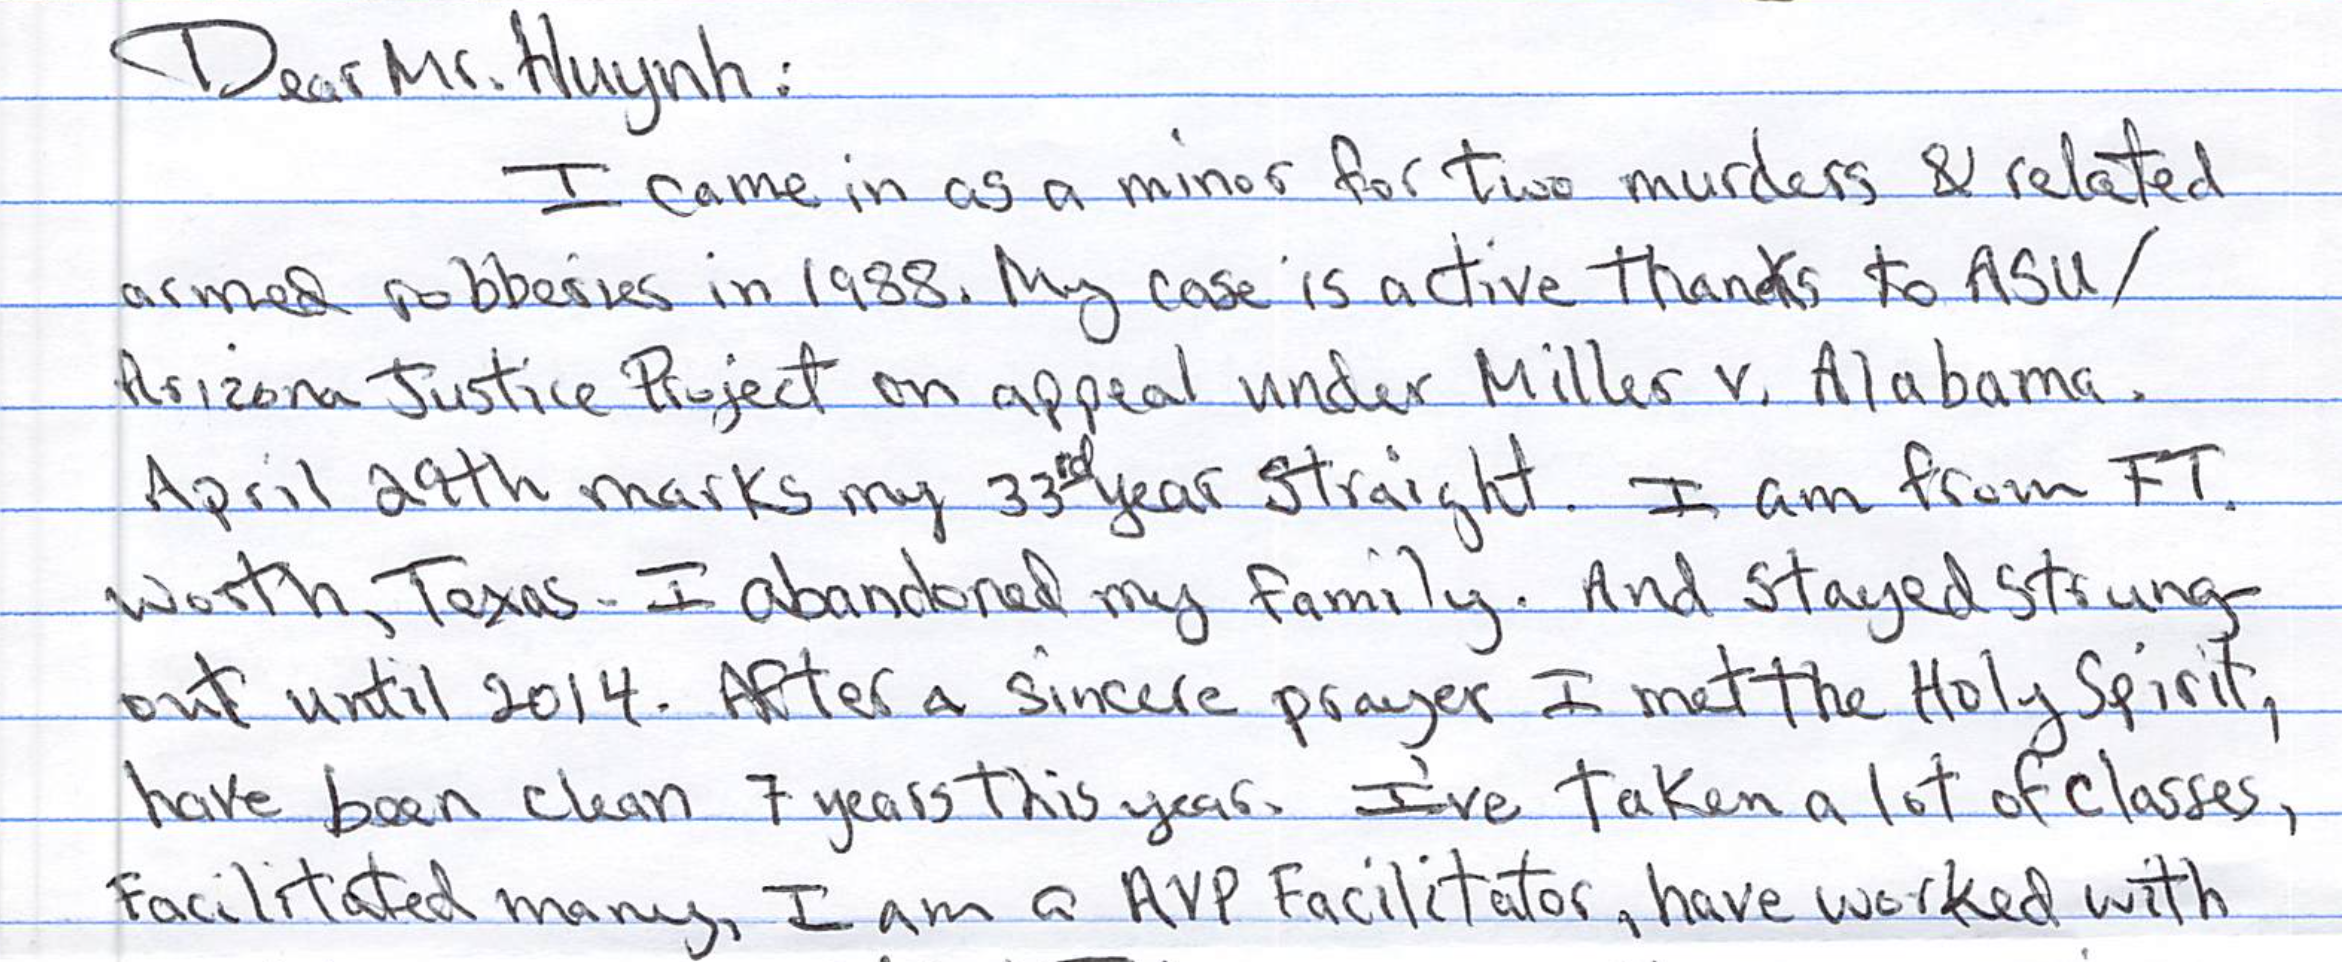 Dear Mr. Huynh:
I came in as a minor for two murders & related
armed robberies in 1988. My case is active thanks to ASU/
Arizona Justice Project on appeal under Miller v. Alabama.
April 29th marks my 33rd year straight. I am from FT.
Worth, Texas. I abandoned my family. And stayed strung-
out until 2014. After a sincere prayer I met the Holy Spirit,
have been clean 7 years this year. I've taken a lot of classes,
Facilitated many, I am a AVP Facilitator, have worked with